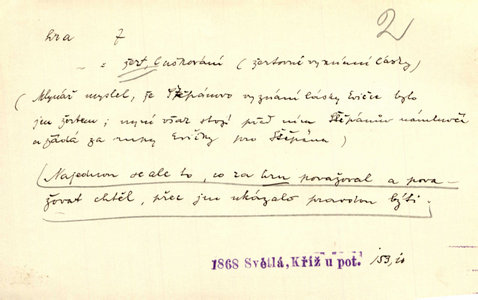 hra 7 2
- = žert, laškování (žertovné vyznání lásky)
(Mlynář myslel, že Štěpánovo vyznání lásky Evičce bylo
jen žertem; nyní však stojí před ním Štěpánův námluvčí
a žádá za ruku Evičky pro Štěpána)
Najednou se ale to, co za hru považoval a pova-
žovat chtěl, přec jen ukázalo pravdou býti.
1868 Světlá, Kříž u pot. 153,